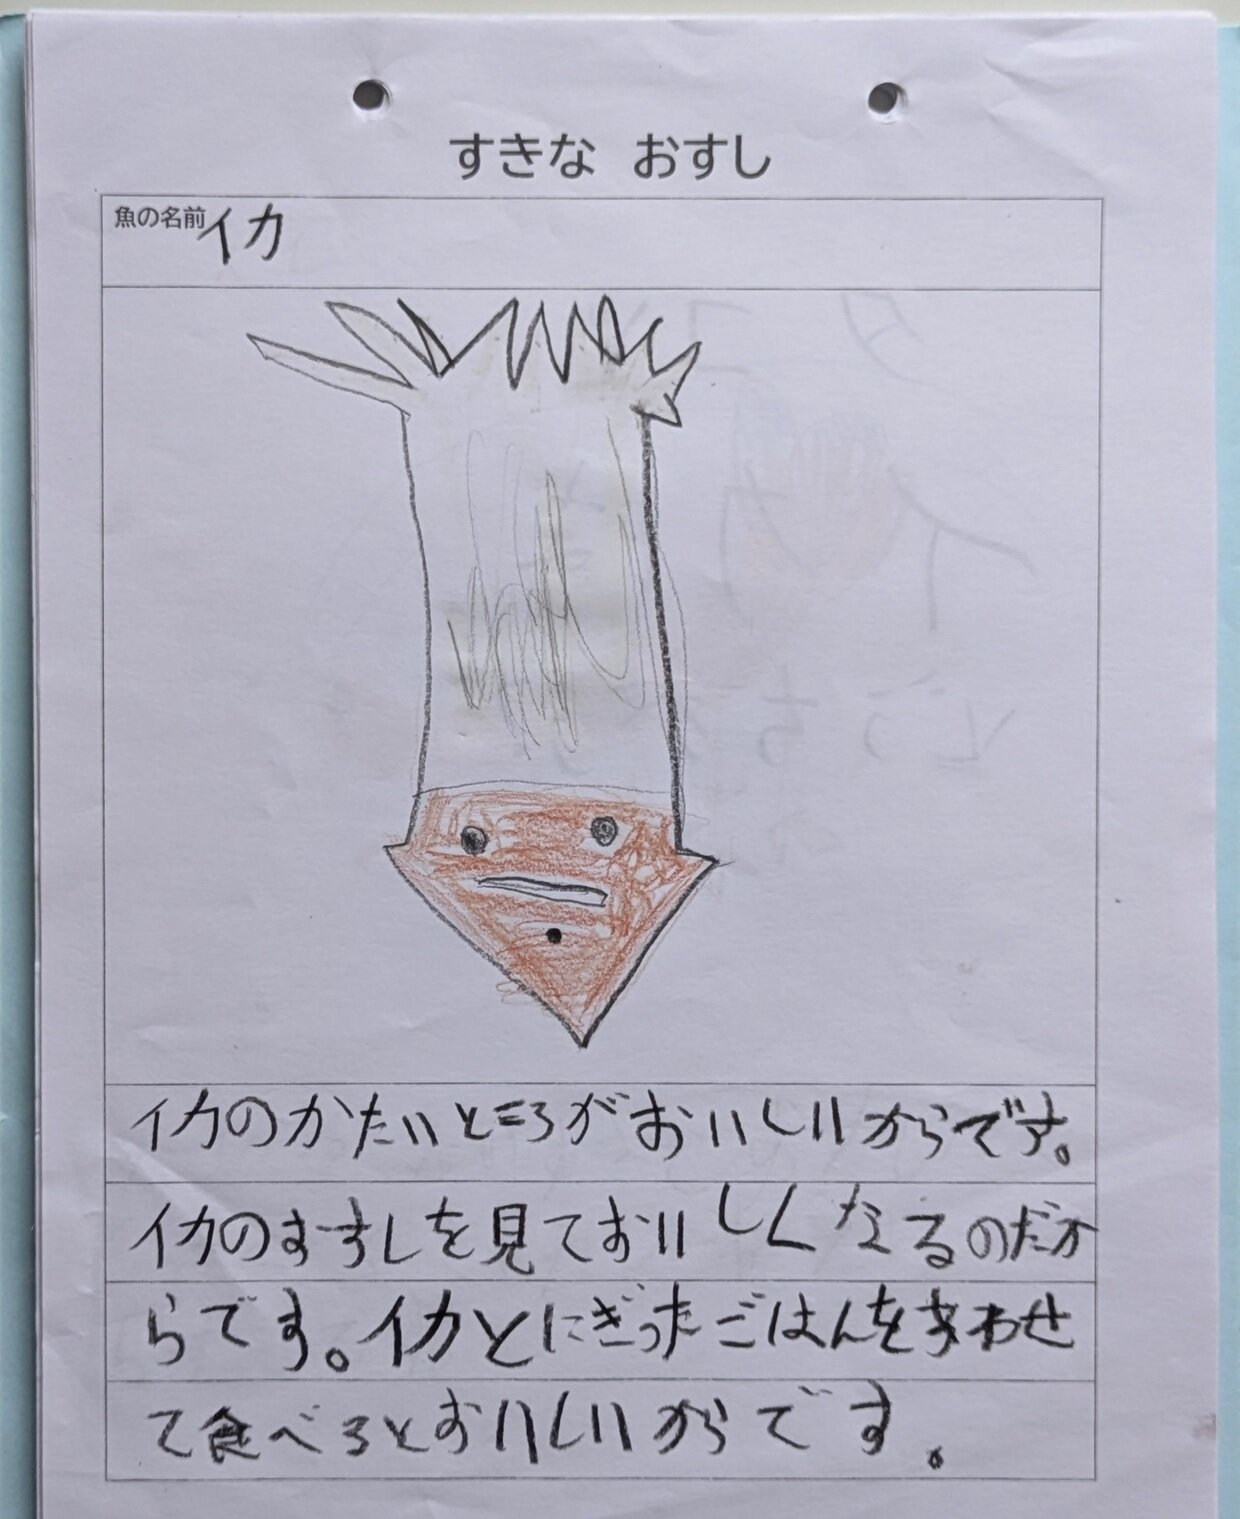 すきな おすし
魚の名前 イカ
イカのかたいところがおいしいからです。
イカのおすしを見ておいしくなるのだか
らです。イカとにぎったごはんをあわせ
て食べるとおいしいからです.